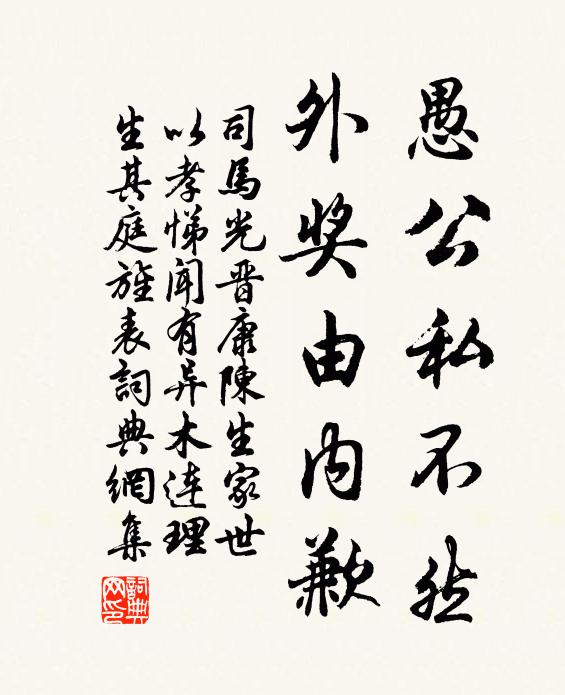 愚公私不然
外奖由内歉
司馬光晋康陳生家世
以孝悌聞有异木连理
生其庭旌表詞典網集
詞典網印